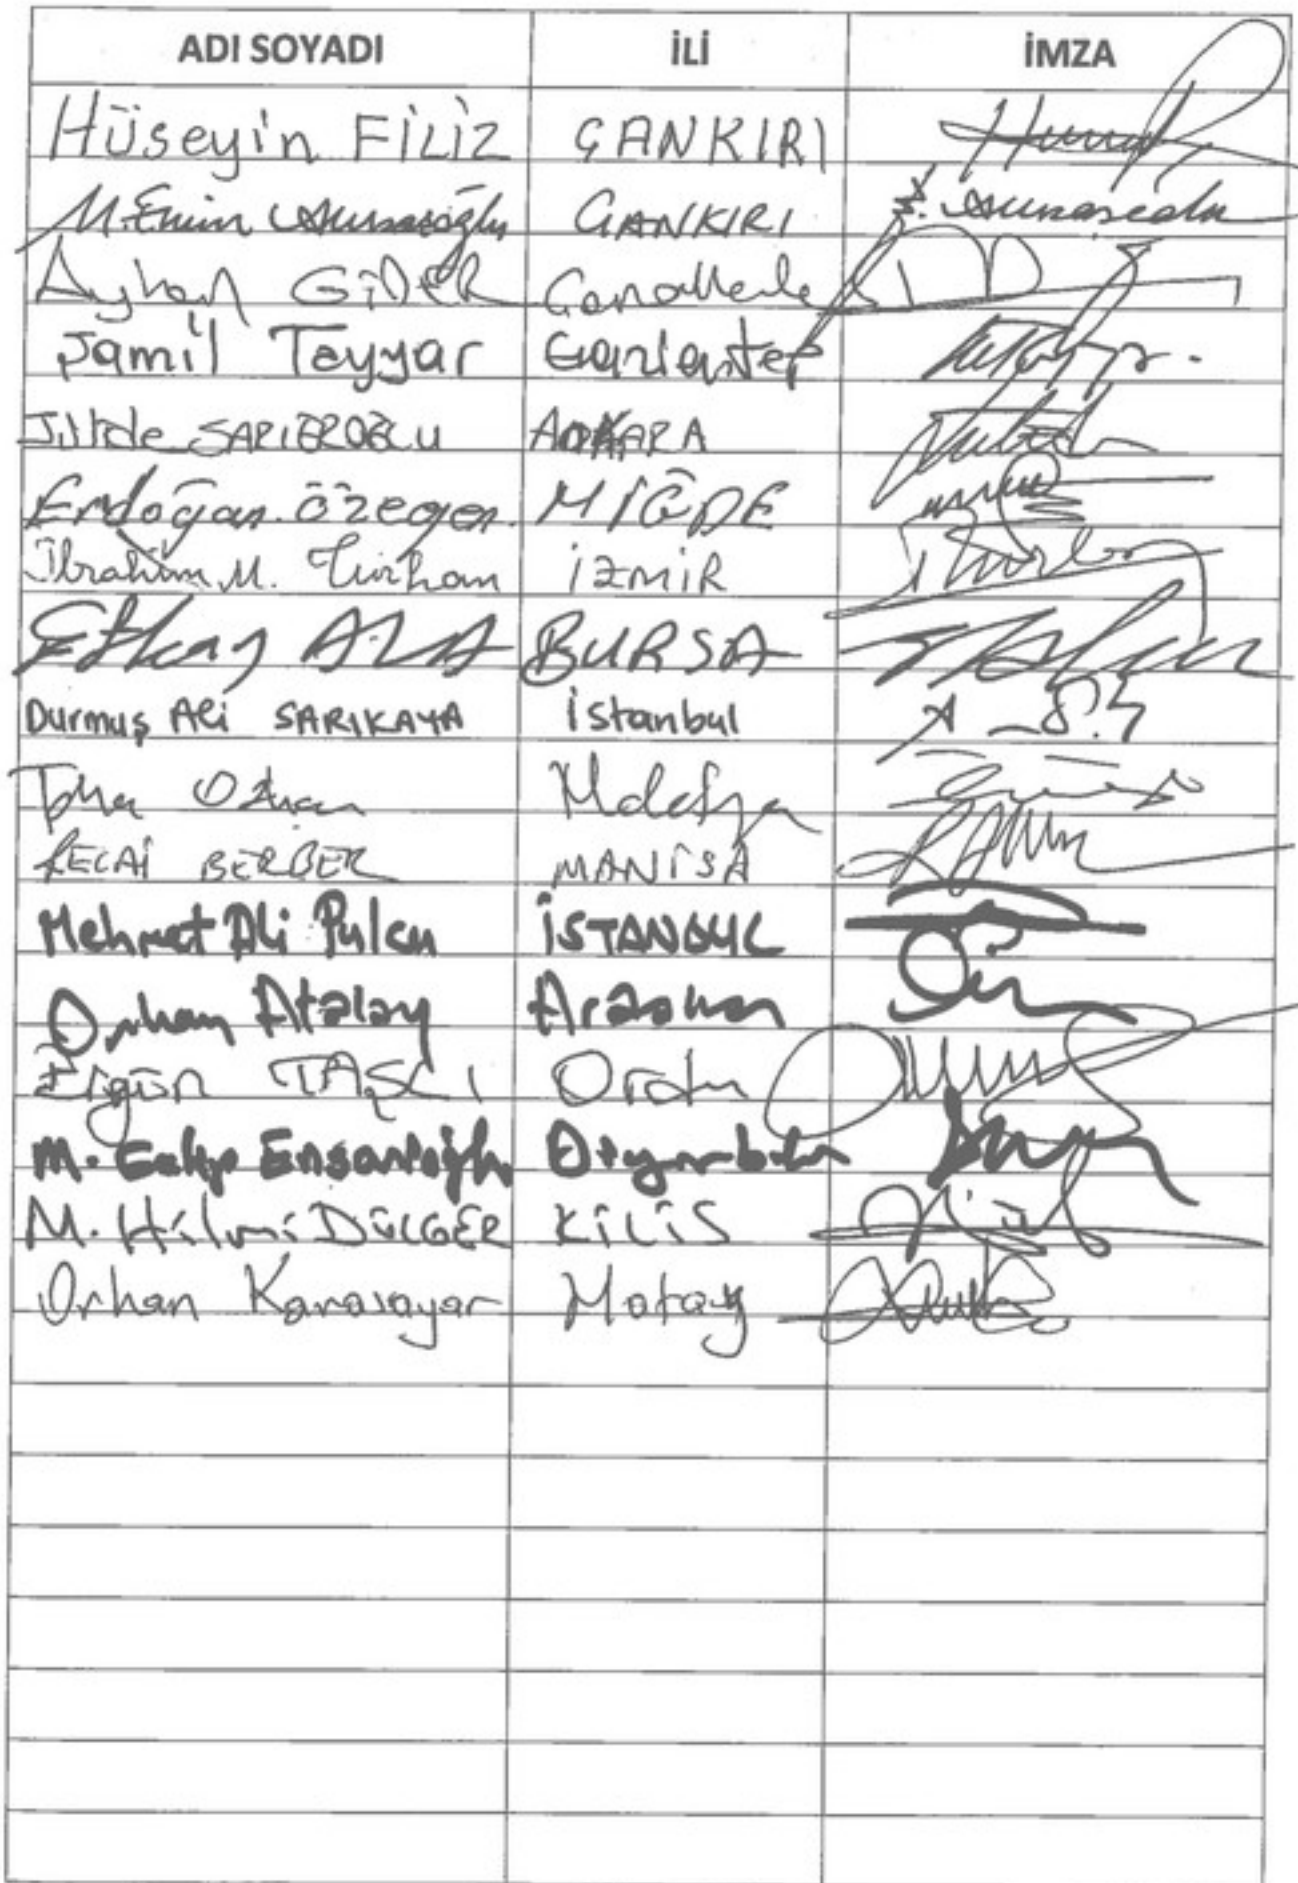 ADI SOYADI İLİ İMZA
Hüseyin FİLİZ ÇANKIRI
M. Emin ÇANKIRI
Ayhan GİDER Çanakkale
Şamil Tayyar Gaziantep
Jülide SARIEROĞLU ANKARA
Erdoğan Özegen NİĞDE
İbrahim M. Turhan İZMİR
Efkan ALA BURSA
Durmuş Ali SARIKAYA İstanbul
Taha Özhan Malatya
RECAİ BERBER MANİSA
Mehmet Ali Pulcu İSTANBUL
Orhan Atalay Ardahan
Ergün TAŞCI Ordu
M. Galip Ensarioğlu Diyarbakır
M. Hilmi DÜLGER KİLİS
Orhan Karasayar Hatay